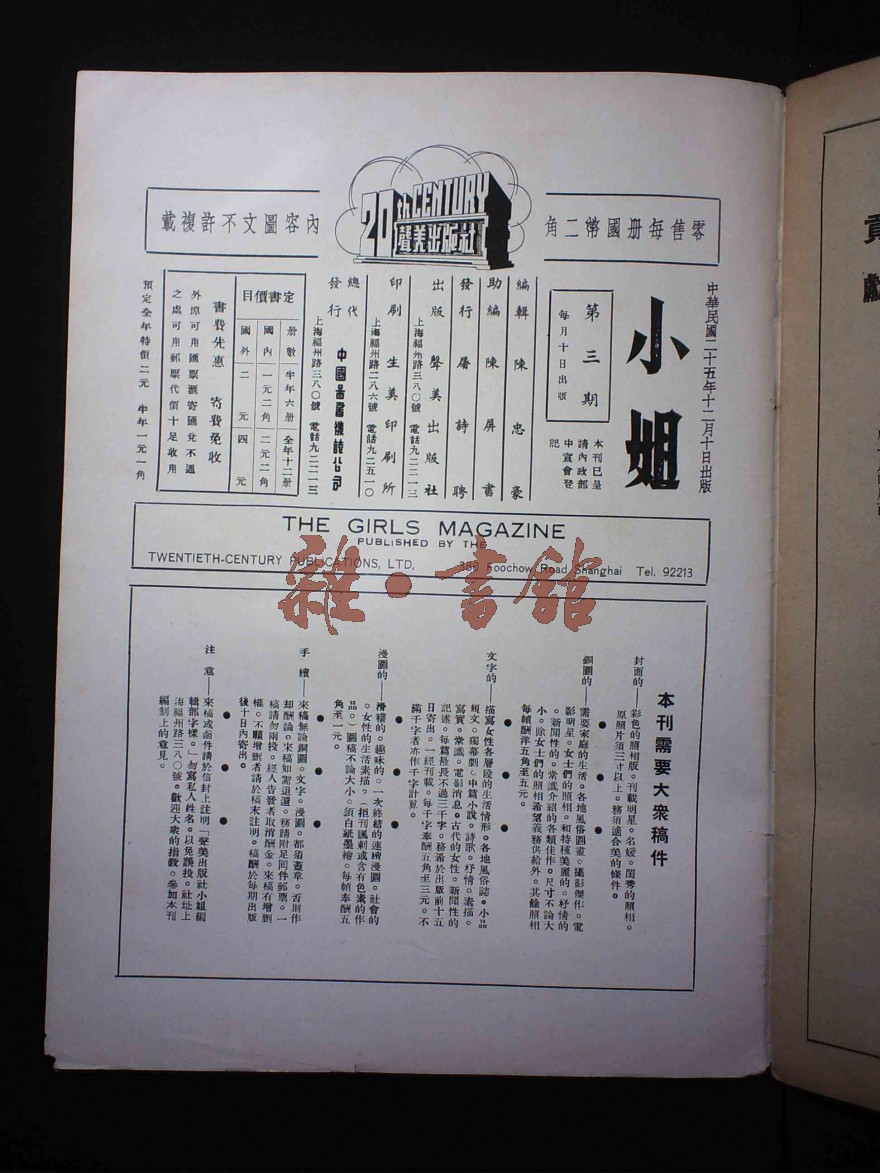 零售每册國幣二角
20th CENTURY
聲美出版社
內容圖文不許複載
中華民國二十五年十二月十日出版
小姐
第三期
每月十日出版
本刊已呈
請內政部
中宣會登
記
編輯 陳忠豪
助編 陳屏書
發行 屠詩聘
出版 聲美出版社
上海福州路三八〇號 電話九二二一三
印刷 生美印刷所
上海福州路二八六號 電話九二五一〇
總代發行 中國圖書雜誌公司
上海福州路三八〇號 電話九二二一三
定書價目
册數 半年六册 全年十二册
國內 一元二角 二元二角
國外 二元 四元
書費先惠 寄費免收
外埠可用匯票滙寄匯兌不通
之處可用郵票代價十足收用
預定全年特價二元 半年一元一角
THE GIRLS MAGAZINE
PUBLISHED BY THE
TWENTIETH-CENTURY PUBLICATIONS, LTD. 380 Foochow Road Shanghai Tel. 92213
雜·書館
本刊需要大衆稿件
封面的——彩色的照相版。刊載明星。名媛。閨秀的照相。
原照片須三寸以上。務須適合美的條件。
銅圖的——需要家庭的生活。各地風俗圖畫。攝影傑作。電
影明星。女士們的照相。和特種美麗的。抒情的
。新聞性的。常識介紹的各類佳作。尺寸不論大
小。除女士們的照相希望義務供給外。其餘照相
每幀酬洋五角至五元。
文字的——描寫女性各層段的生活情形。各地風俗誌。小品
短文。獨幕劇。中篇小說。詩歌。抒情。素描。
寫實。常識。電影消息。古代的女性。新聞性的
記述。每篇最長不過三千字。務希於出版前十五
日寄出。一經刊載。每千字奉酬五角至三元。不
滿千字者亦作千字計算。
漫圖的——滑稽的。趣味的。一次終結的連續漫圖。社會的
。女性的生活素描。（拒刊諷刺或含有色素的作
品。）圖稿不論大小。須白紙墨繪。每幀奉酬五
角至一元。
手續——來稿無論銅圖。文字。漫圖。都須蓋章。否則作
却酬論。來稿如需退還。務請附足回件郵票。一
稿請勿兩投。經人告發者取消酬金。來稿有增刪
權。不願增刪者請於稿末註明。稿酬於每期出版
後十日內寄出。
注意——來稿或函件請於信封上注明「聲美出版社小姐編
輯部字樣。」勿寫私人姓名。以免誤投。社址上
海福州路三八〇號。歡迎大衆的指敎。參加本刊
編制上的意見。